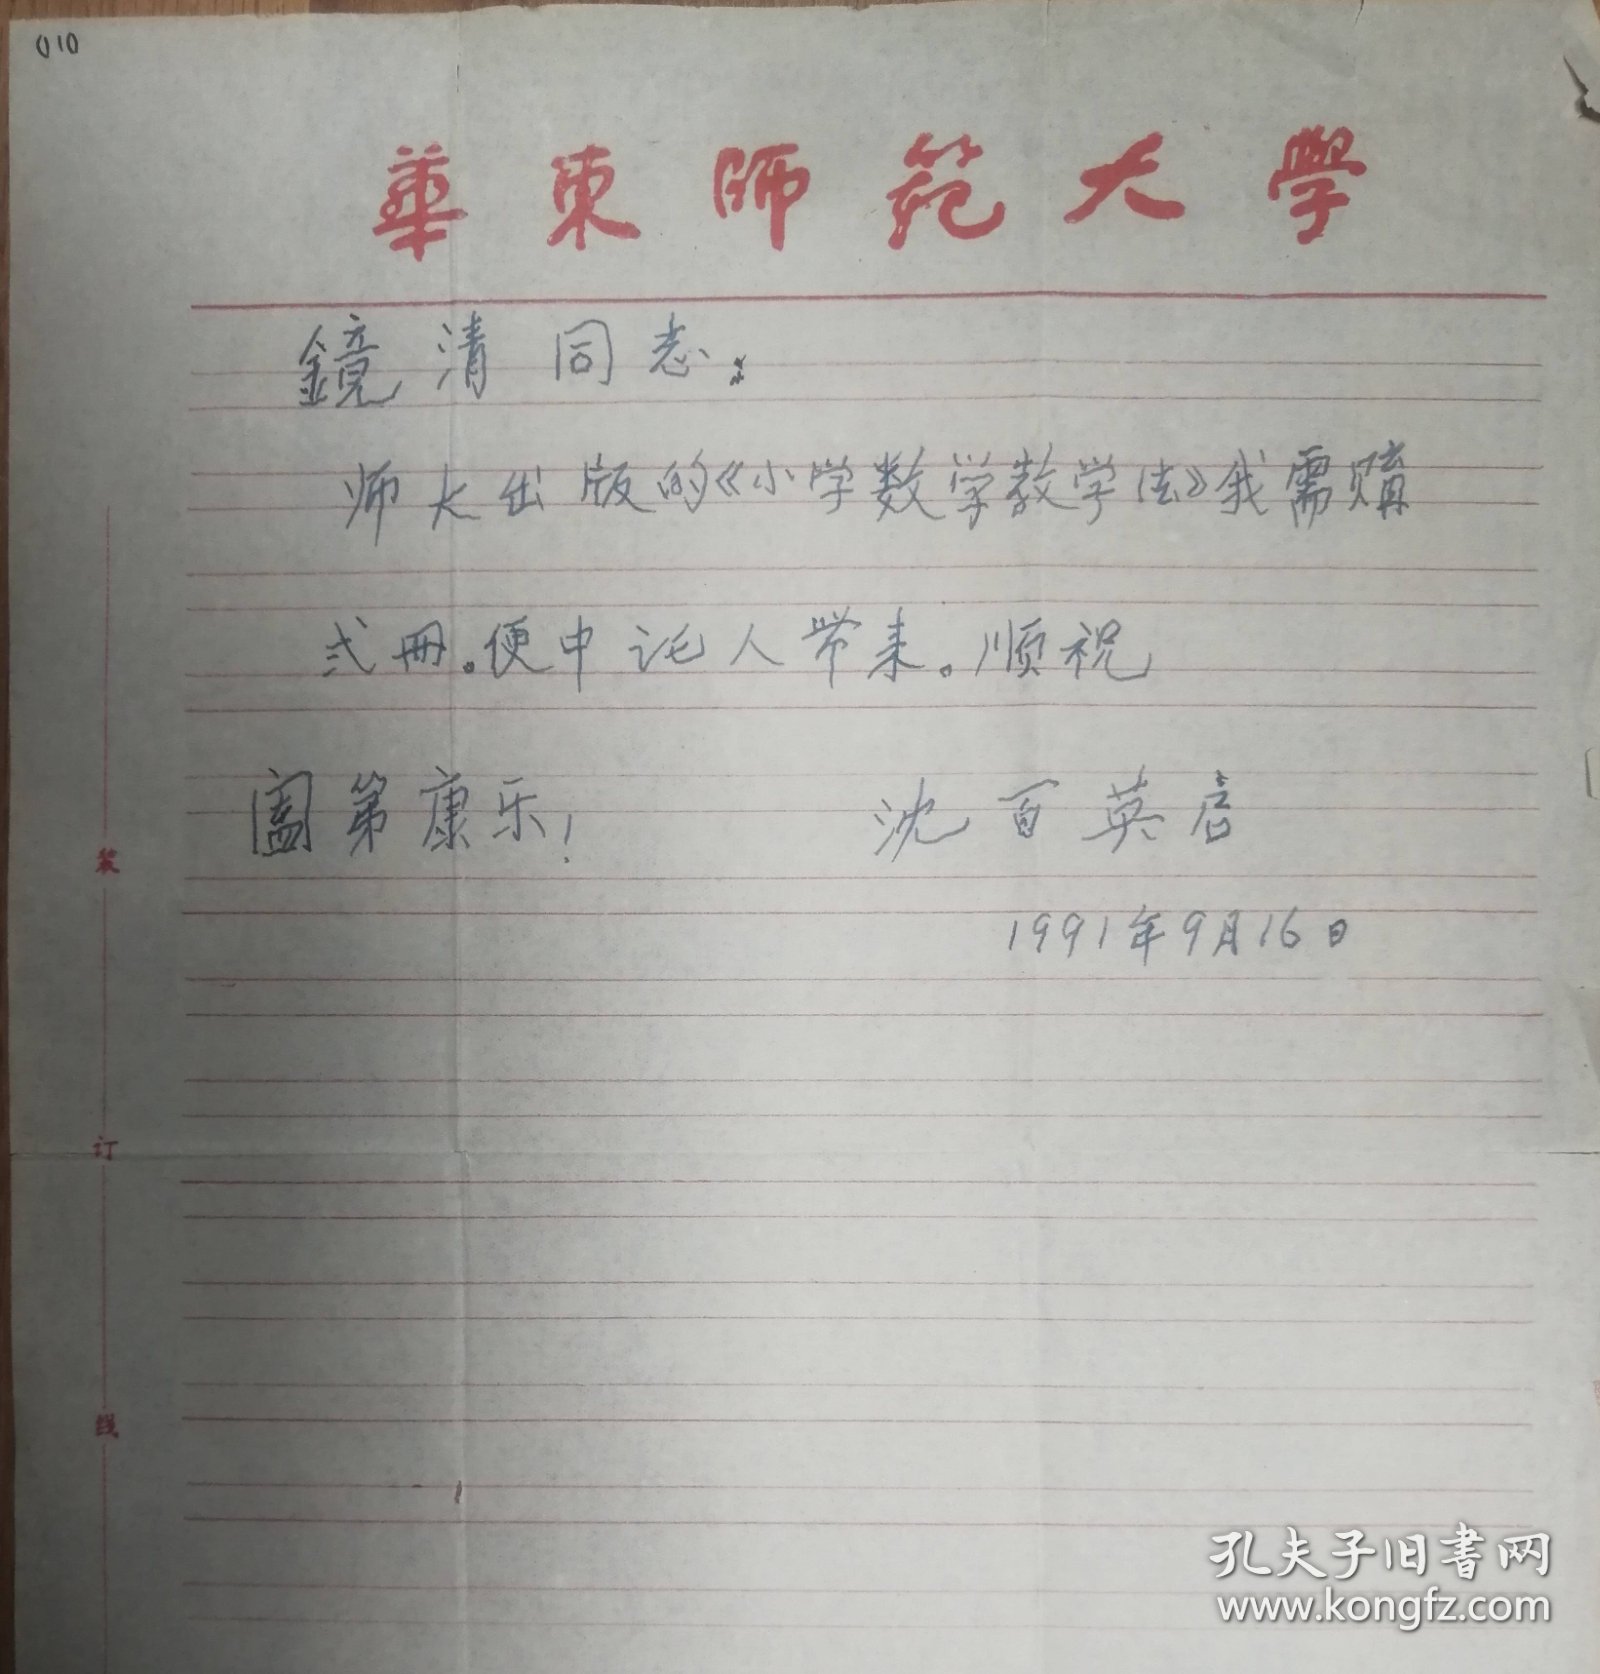 010
華東師範大學
鏡清同志：
师大出版的《小学数学教学法》我需购
弍冊。便中讬人带来。顺祝
阖第康乐！
沈百英启
1991年9月16日
装
订
线
孔夫子旧书网
www.kongfz.com